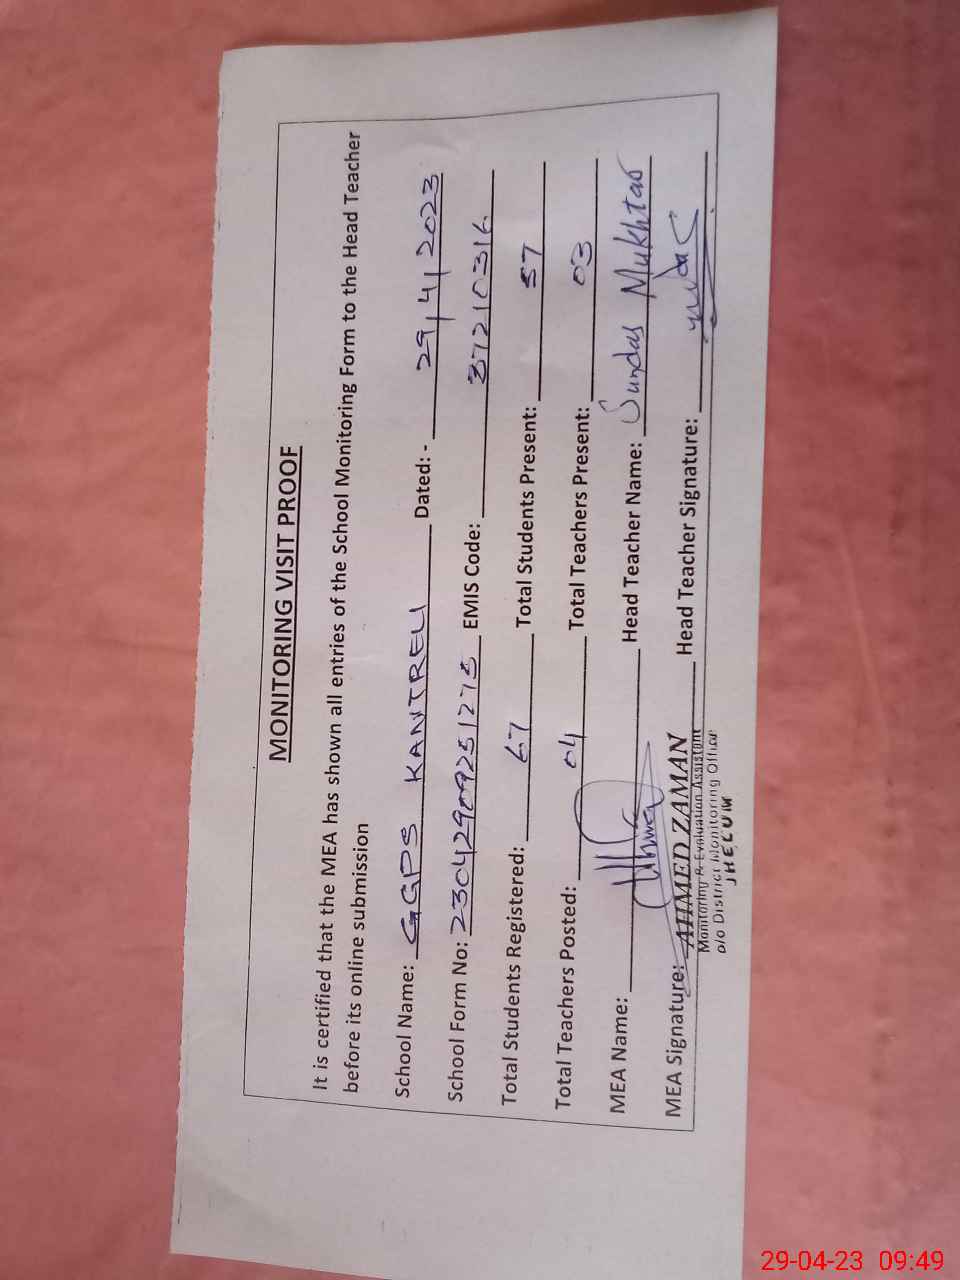 MONITORING VISIT PROOF
It is certified that the MEA has shown all entries of the School Monitoring Form to the Head Teacher
before its online submission
School Name: GGPS KANTRELI Dated: - 29/4/2023
School Form No: 23042909251275 EMIS Code: 37210316
Total Students Registered: 67 Total Students Present: 57
Total Teachers Posted: 04 Total Teachers Present: 03
MEA Name: Head Teacher Name: Sundas Mukhtar
MEA Signature: AHMED ZAMAN Head Teacher Signature:
Monitoring & Evaluation Assistant
o/o District Monitoring Officer
JHELUM
29-04-23 09:49